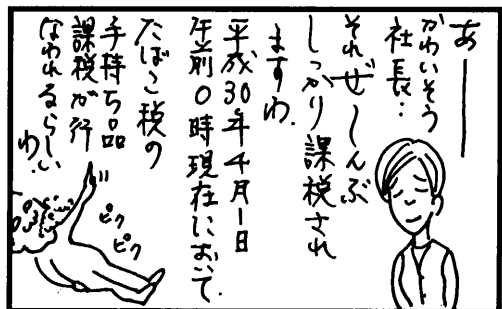 あ――
かわいそう
社長…
それぜ〜んぶ
しっかり課税され
ますわ.
平成30年4月1日
午前0時現在において.
たばこ税の
手持ち品
課税が行
なわれるらしい
わ.
ピク
ピク